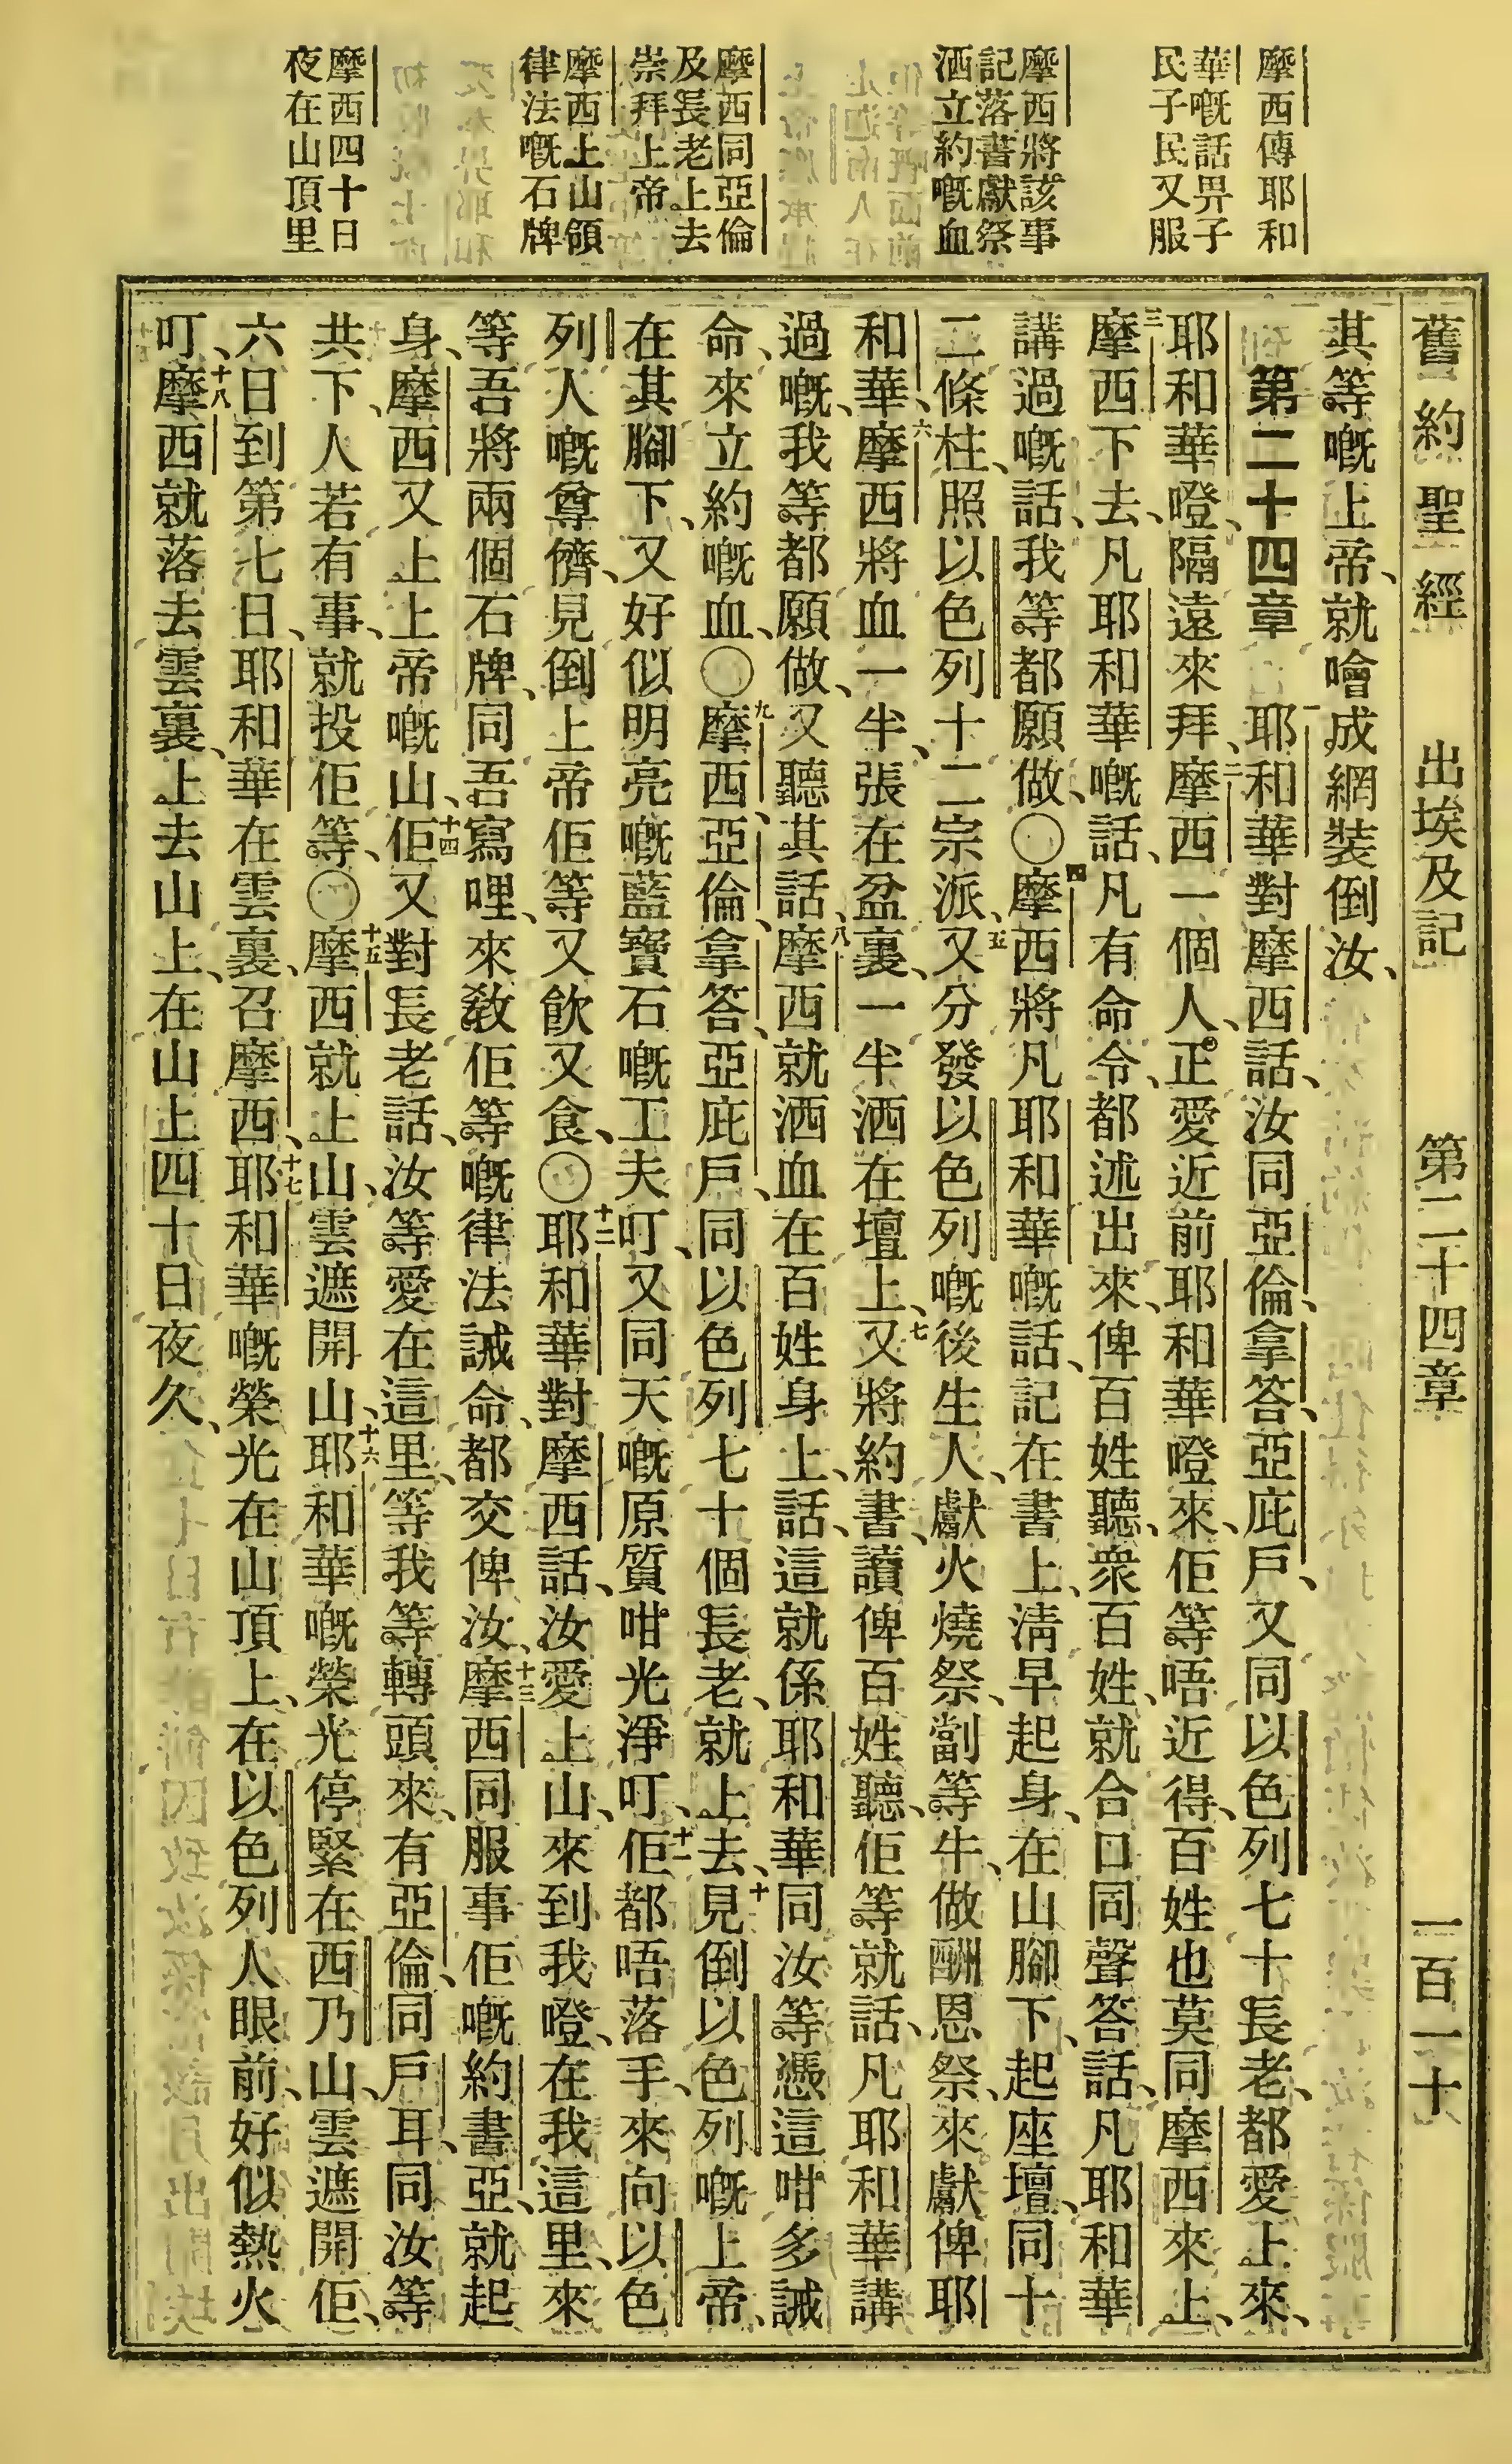 摩西傳耶和
華嘅話畀子
民子民又服
摩西將該事
記落書獻祭
洒立約嘅血
摩西同亞倫
及長老上去
崇拜上帝
摩西上山領
律法嘅石牌
摩西四十日
夜在山頂里
舊約聖經 出埃及記 第二十四章 一百一十
其等嘅上帝、就噲成網裝倒汝、
第二十四章 一耶和華對摩西話、汝同亞倫、拿答、亞庇戶、又同以色列七十長老、都愛上來、
耶和華嶝、隔遠來拜、二摩西一個人、正愛近前耶和華嶝來、佢等唔近得、百姓也莫同摩西來上、
三摩西下去、凡耶和華嘅話、凡有命令、都述出來、俾百姓聽、衆百姓、就合口同聲答話、凡耶和華
講過嘅話、我等都願做、〇四摩西將凡耶和華嘅話、記在書上、淸早起身、在山腳下、起座壇、同十
二條柱、照以色列十二宗派、五又分發以色列嘅後生人、獻火燒祭、劏等牛、做酬恩祭、來獻俾耶
和華、六摩西將血一半、張在盆裏、一半洒在壇上、七又將約書、讀俾百姓聽、佢等就話、凡耶和華講
過嘅、我等都願做、又聽其話、八摩西就洒血在百姓身上、話、這就係耶和華同汝等憑這咁多誡
命、來立約嘅血、〇九摩西、亞倫、拿答、亞庇戶、同以色列七十個長老、就上去、十見倒以色列嘅上帝、
在其腳下、又好似明亮嘅藍寶石嘅工夫叮、又同天嘅原質咁光淨叮、十一佢都唔落手、來向以色
列人嘅尊儕、見倒上帝佢等又飮又食、〇十二耶和華對摩西話、汝愛上山、來到我嶝、在我這里、來
等吾將兩個石牌、同吾寫哩、來敎佢等嘅律法誡命、都交俾汝、十三摩西同服事佢嘅約書亞、就起
身、摩西又上上帝嘅山、十四佢又對長老話、汝等愛在這里、等我等轉頭來、有亞倫、同戶耳、同汝等
共下、人若有事、就投佢等、〇十五摩西就上山、雲遮開山、十六耶和華嘅榮光停緊在西乃山、雲遮開佢、
六日到第七日、耶和華在雲裏、召摩西、十七耶和華嘅榮光在山頂上、在以色列人眼前、好似熱火
叮、十八摩西就落去雲裏、上去山上、在山上四十日夜久、